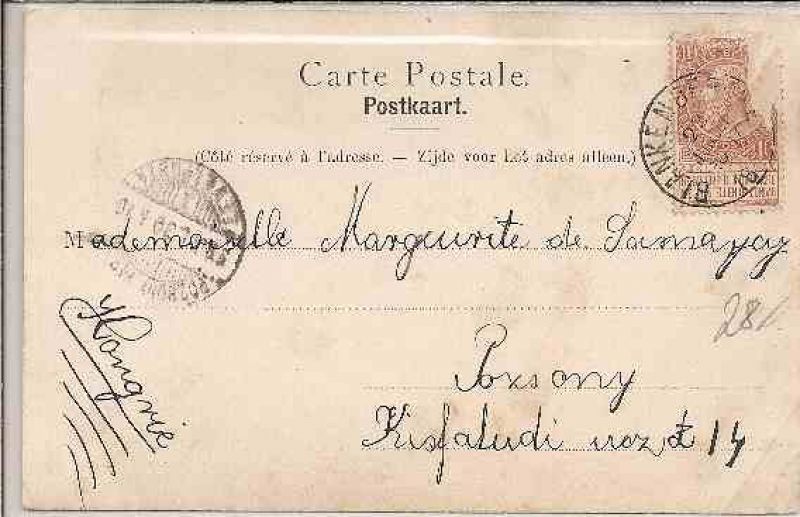 Carte Postale.
Postkaart.
(Côté réservé à l'adresse. — Zijde voor het adres alleen.)
BLANKENBERGHE
Mademoiselle Marguerite de
Hongrie
28/.
Pozsony
Kisfaludi 14